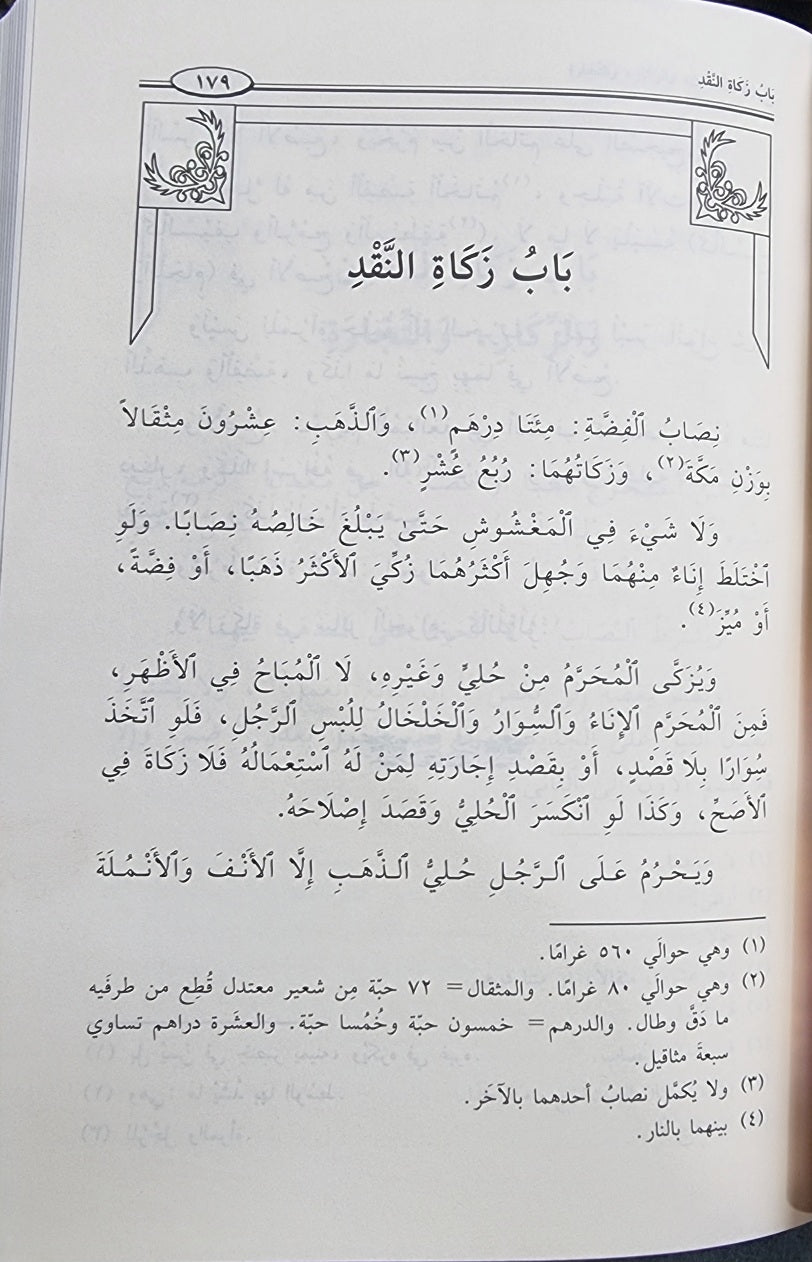 بَابُ زَكَاةِ النَّقْدِ
١٧٩
بَابُ زَكَاةِ النَّقْدِ
نِصَابُ ٱلْفِضَّةِ: مِئَتَا دِرْهَمٍ(١)، وَٱلذَّهَبِ: عِشْرُونَ مِثْقَالاً
بِوَزْنِ مَكَّةَ(٢)، وَزَكَاتُهُمَا: رُبُعُ عُشْرٍ(٣).
وَلَا شَيْءَ فِي ٱلْمَغْشُوشِ حَتَّىٰ يَبْلُغَ خَالِصُهُ نِصَابًا. وَلَوِ
ٱخْتَلَطَ إِنَاءٌ مِنْهُمَا وَجُهِلَ أَكْثَرُهُمَا زُكِّيَ ٱلأَكْثَرُ ذَهَبًا، أَوْ فِضَّةً،
أَوْ مُيِّزَ(٤).
وَيُزَكَّى ٱلْمُحَرَّمُ مِنْ حُلِيٍّ وَغَيْرِهِ، لَا ٱلْمُبَاحُ فِي ٱلأَظْهَرِ،
فَمِنَ ٱلْمُحَرَّمِ ٱلإِنَاءُ وَٱلسُّوَارُ وَٱلْخَلْخَالُ لِلُبْسِ ٱلرَّجُلِ، فَلَوِ ٱتَّخَذَ
سُوَارًا بِلَا قَصْدٍ، أَوْ بِقَصْدِ إِجَارَتِهِ لِمَنْ لَهُ ٱسْتِعْمَالُهُ فَلَا زَكَاةَ فِي
ٱلأَصَحِّ، وَكَذَا لَوِ ٱنْكَسَرَ ٱلْحُلِيُّ وَقَصَدَ إِصْلَاحَهُ.
وَيَحْرُمُ عَلَى ٱلرَّجُلِ حُلِيُّ ٱلذَّهَبِ إِلَّا ٱلأَنْفَ وَٱلأَنْمُلَةَ
(١) وهي حوالَي ٥٦٠ غرامًا.
(٢) وهي حوالَي ٨٠ غرامًا. والمثقال= ٧٢ حبّة مِن شعير معتدل قُطِع من طرفَيه
ما دَقَّ وطال. والدرهم= خمسون حبّة وخُمُسا حبّة. والعشَرة دراهم تساوي
سبعةَ مثاقيل.
(٣) ولا يُكمَّل نصابُ أحدهما بالآخَر.
(٤) بينهما بالنار.